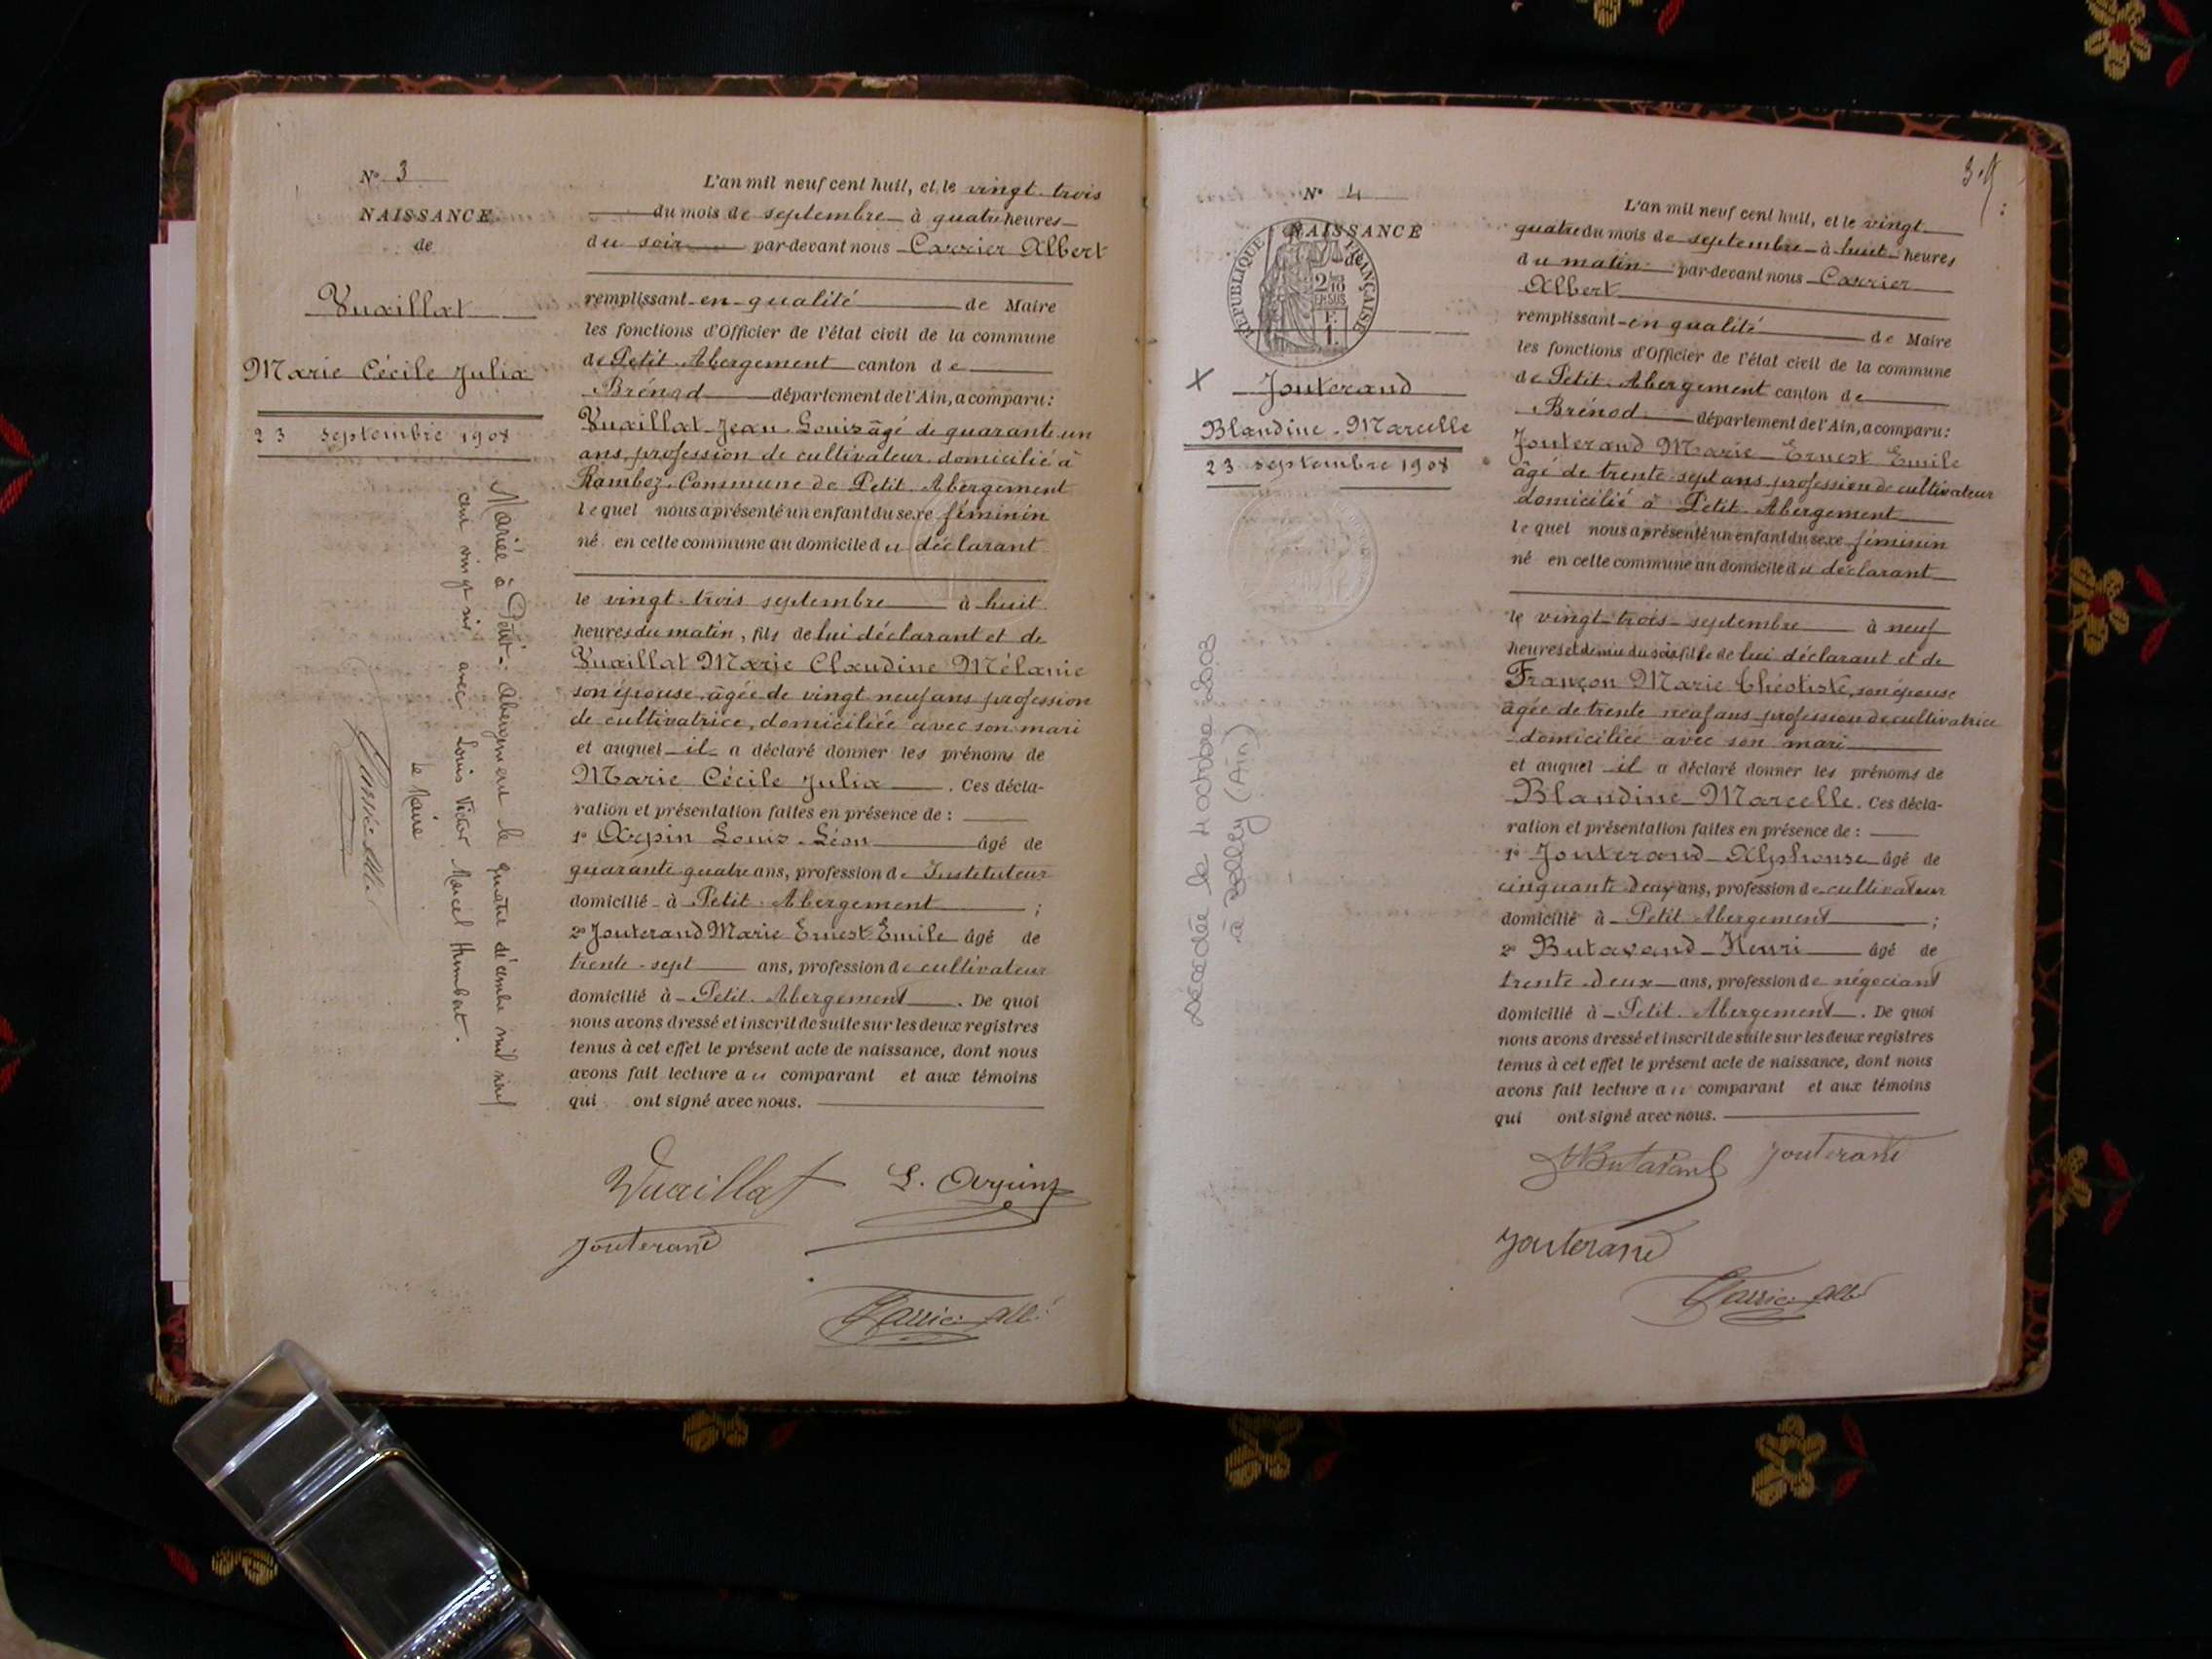 N° 3
NAISSANCE
de
Vuaillat
Marie Cécile Julia
23 septembre 1908
Mariée à Petit-Abergement le quatre décembre mil neuf
cent vingt six avec Louis Victor Marcel Humbert.
Le Maire
L'an mil neuf cent huit, et le vingt-trois
du mois de septembre à quatre heures
du soir par-devant nous Carrier Albert
remplissant en qualité de Maire
les fonctions d'Officier de l'état civil de la commune
de Petit-Abergement canton de
Brénod département de l'Ain, a comparu:
Vuaillat Jean-Louis âgé de quarante-un
ans, profession de cultivateur domicilié à
Ramboz. Commune de Petit-Abergement
lequel nous a présenté un enfant du sexe féminin
né en cette commune au domicile du déclarant
le vingt-trois septembre à huit
heures du matin, fils de lui déclarant et de
Vuaillat Marie Claudine Mélanie
son épouse, âgée de vingt neuf ans profession
de cultivatrice, domiciliée avec son mari
et auquel il a déclaré donner les prénoms de
Marie Cécile Julia. Ces décla-
ration et présentation faites en présence de :
1° Arpin Louis-Léon âgé de
quarante quatre ans, profession de Instituteur
domicilié à Petit-Abergement ;
2° Jouterand Marie Ernest Emile âgé de
trente-sept ans, profession de cultivateur
domicilié à Petit-Abergement. De quoi
nous avons dressé et inscrit de suite sur les deux registres
tenus à cet effet le présent acte de naissance, dont nous
avons fait lecture au comparant et aux témoins
qui ont signé avec nous.
Vuaillat L. Arpin
Jouterand
Carrier Alb
N° 4
NAISSANCE
de
RÉPUBLIQUE FRANÇAISE
2/10
EN SUS
1 F.
X Jouterand
Blandine-Marcelle
23 septembre 1908
Décédée le 4 octobre 2003
à Belley (Ain)
L'an mil neuf cent huit, et le vingt
quatre du mois de septembre à huit heures
du matin par-devant nous Carrier
Albert
remplissant en qualité de Maire
les fonctions d'Officier de l'état civil de la commune
de Petit-Abergement canton de
Brénod département de l'Ain, a comparu:
Jouterand Marie-Ernest Emile
âgé de trente-sept ans, profession de cultivateur
domicilié à Petit-Abergement
lequel nous a présenté un enfant du sexe féminin
né en cette commune au domicile du déclarant
le vingt-trois septembre à neuf
heures et demie du soir fille de lui déclarant et de
Françon Marie Théotiste, son épouse
âgée de trente neuf ans profession de cultivatrice
domiciliée avec son mari
et auquel il a déclaré donner les prénoms de
Blandine-Marcelle. Ces décla-
ration et présentation faites en présence de :
1° Jouterand Alphonse âgé de
cinquante-deux ans, profession de cultivateur
domicilié à Petit-Abergement ;
2° Butavand Henri âgé de
trente-deux ans, profession de négociant
domicilié à Petit-Abergement. De quoi
nous avons dressé et inscrit de suite sur les deux registres
tenus à cet effet le présent acte de naissance, dont nous
avons fait lecture au comparant et aux témoins
qui ont signé avec nous.
HButavand Jouterand
Jouterand
Carrier Alb